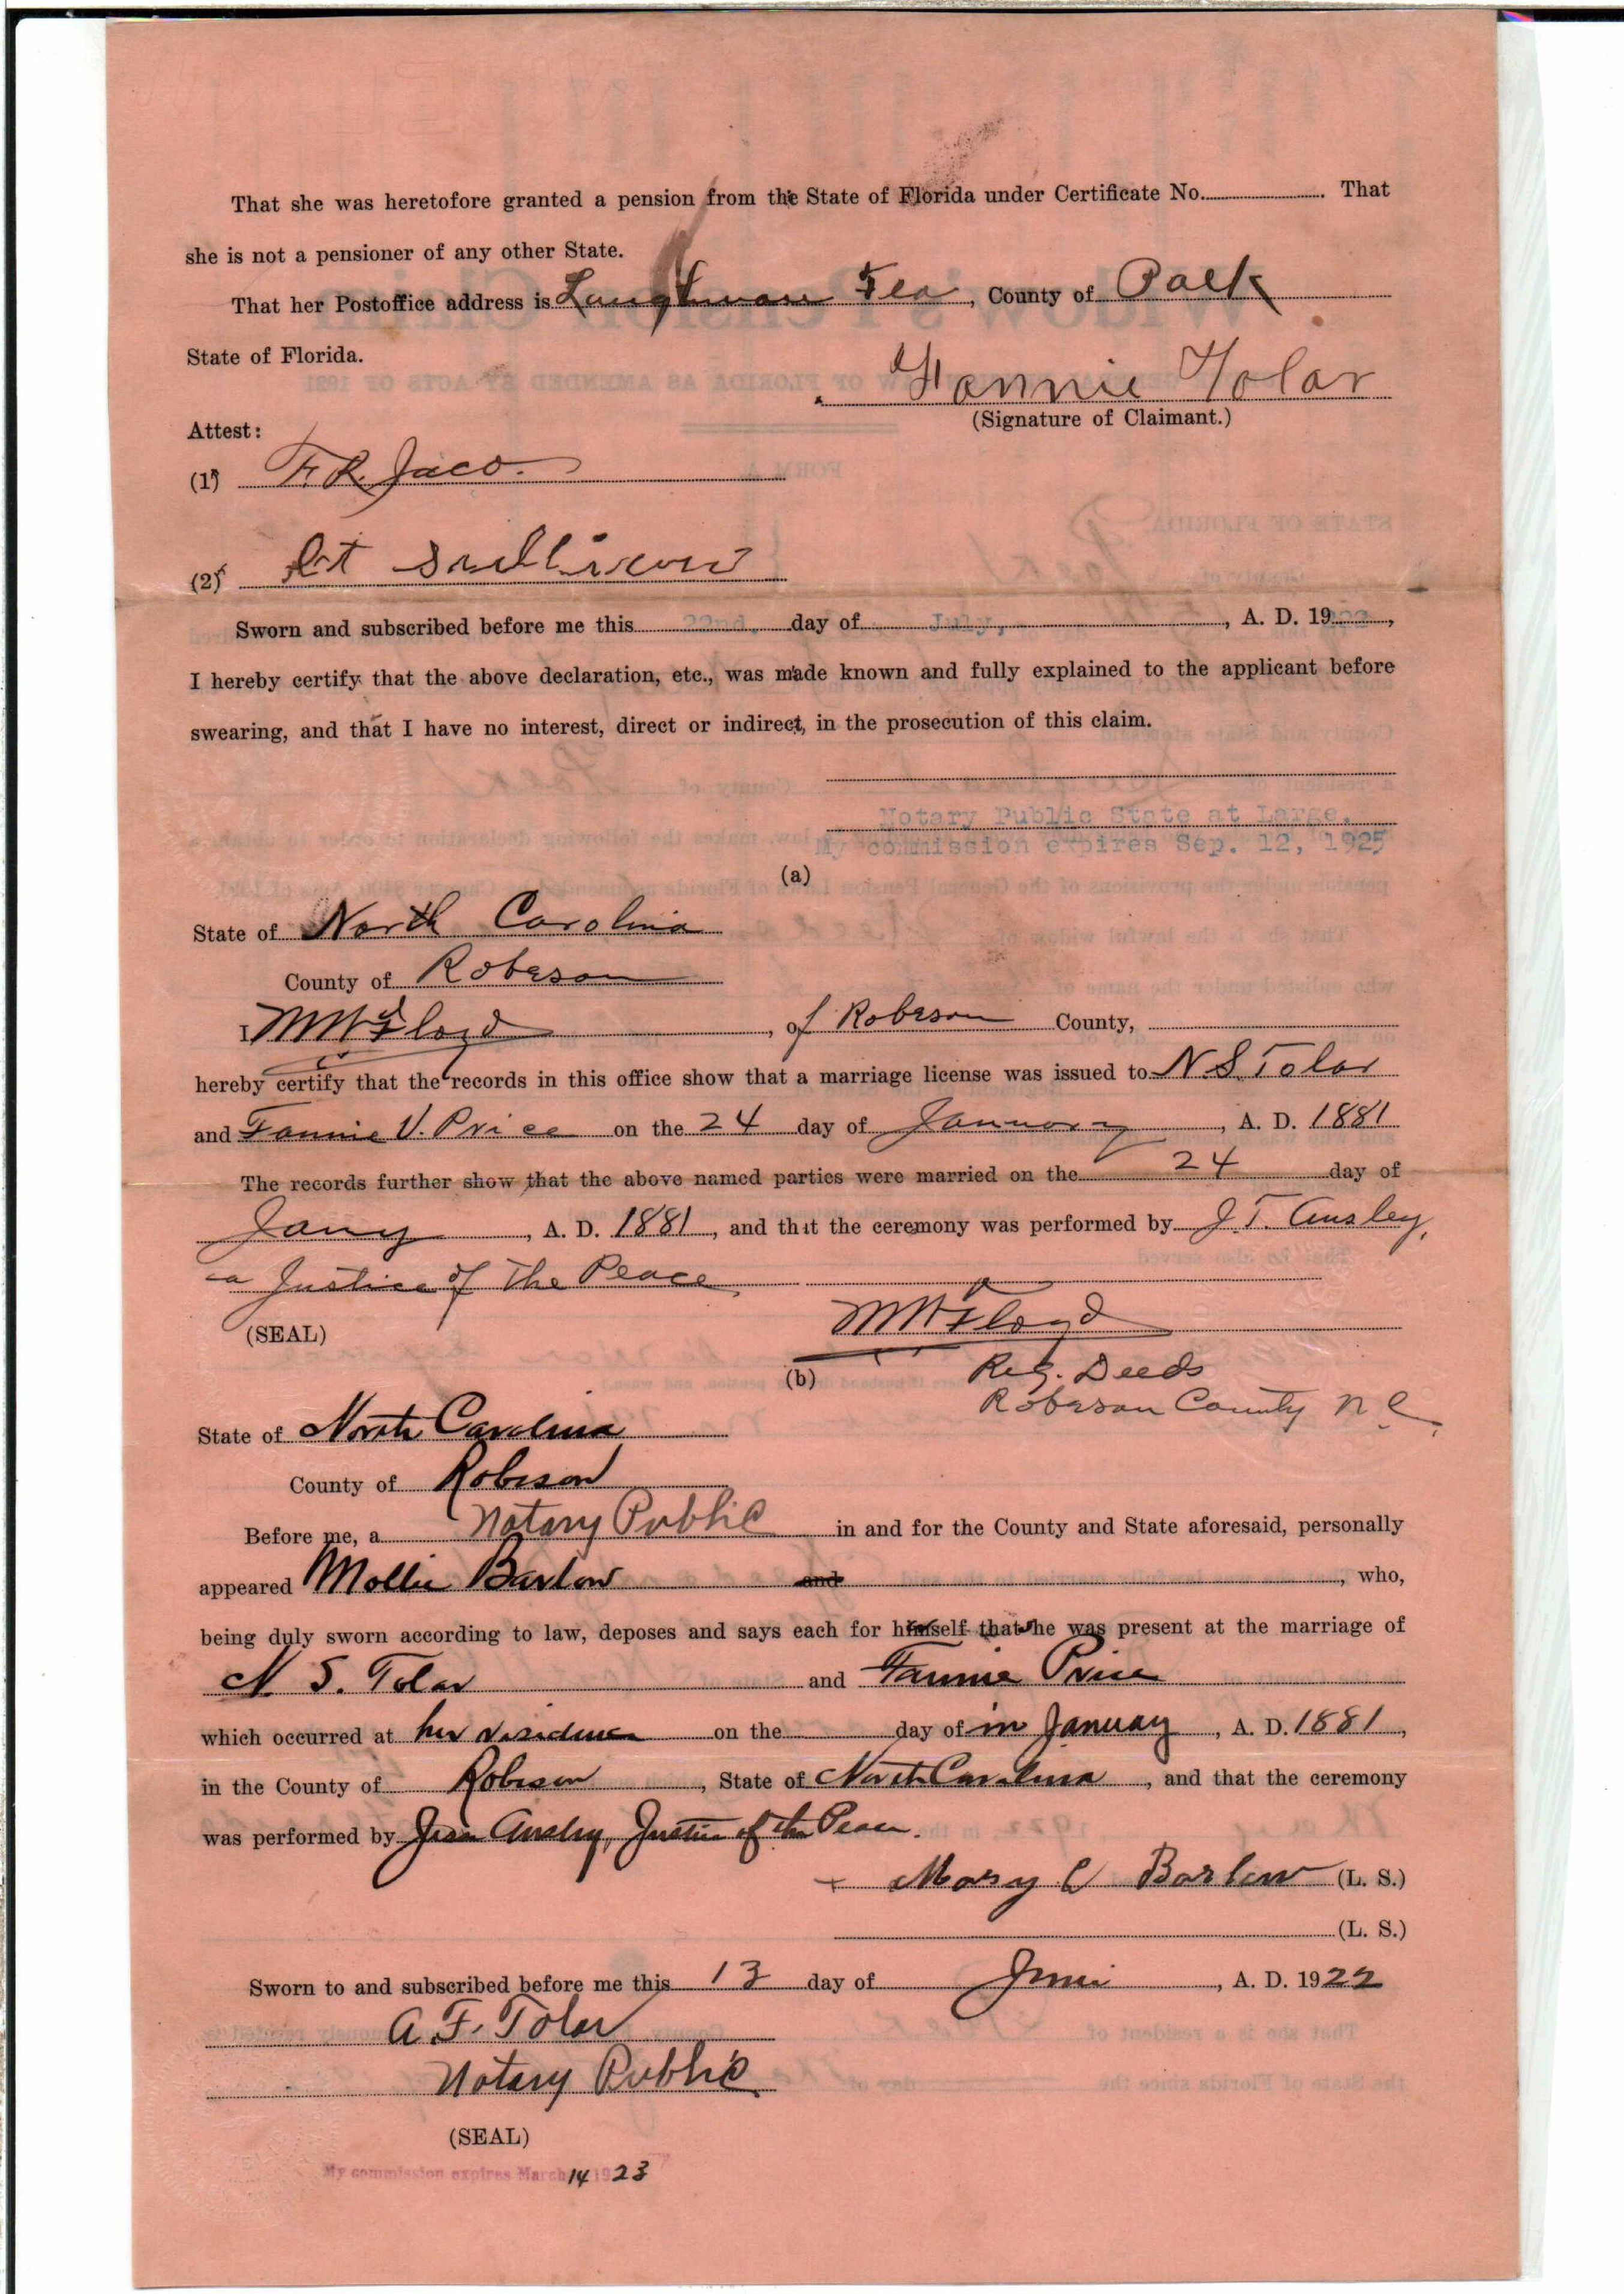 That she was heretofore granted a pension from the State of Florida under Certificate No. That
she is not a pensioner of any other State.
That her Postoffice address is Laughman Fla, County of Polk
State of Florida.
Fannie Tolar
(Signature of Claimant.)
Attest:
(1) F. R. Jaco.
(2)
Sworn and subscribed before me this 22nd. day of July, , A. D. 1922,
I hereby certify that the above declaration, etc., was made known and fully explained to the applicant before
swearing, and that I have no interest, direct or indirect, in the prosecution of this claim.
Notary Public State at Large.
My commission expires Sep. 12, 1925
(a)
State of North Carolina
County of Robeson
I M W Floyd, of Robeson County,
hereby certify that the records in this office show that a marriage license was issued to N. S. Tolar
and Fannie V. Price on the 24 day of January, A. D. 1881
The records further show that the above named parties were married on the 24 day of
Jany, A. D. 1881, and that the ceremony was performed by J. T. Ansley,
a Justice of The Peace
(SEAL)
M W Floyd
(b)
Reg. Deeds
Robeson County N C.
State of North Carolina
County of Robeson
Before me, a Notary Public in and for the County and State aforesaid, personally
appeared Mollie Barlow and , who,
being duly sworn according to law, deposes and says each for himself that he was present at the marriage of
N. S. Tolar and Fannie Price
which occurred at her residence on the day of in January, A. D. 1881,
in the County of Robeson, State of North Carolina, and that the ceremony
was performed by Ansley, Justice of the Peace.
Mary C Barlow (L. S.)
(L. S.)
Sworn to and subscribed before me this 13 day of June, A. D. 1922
A. F. Tolar
Notary Public
(SEAL)
My commission expires March 14 1923